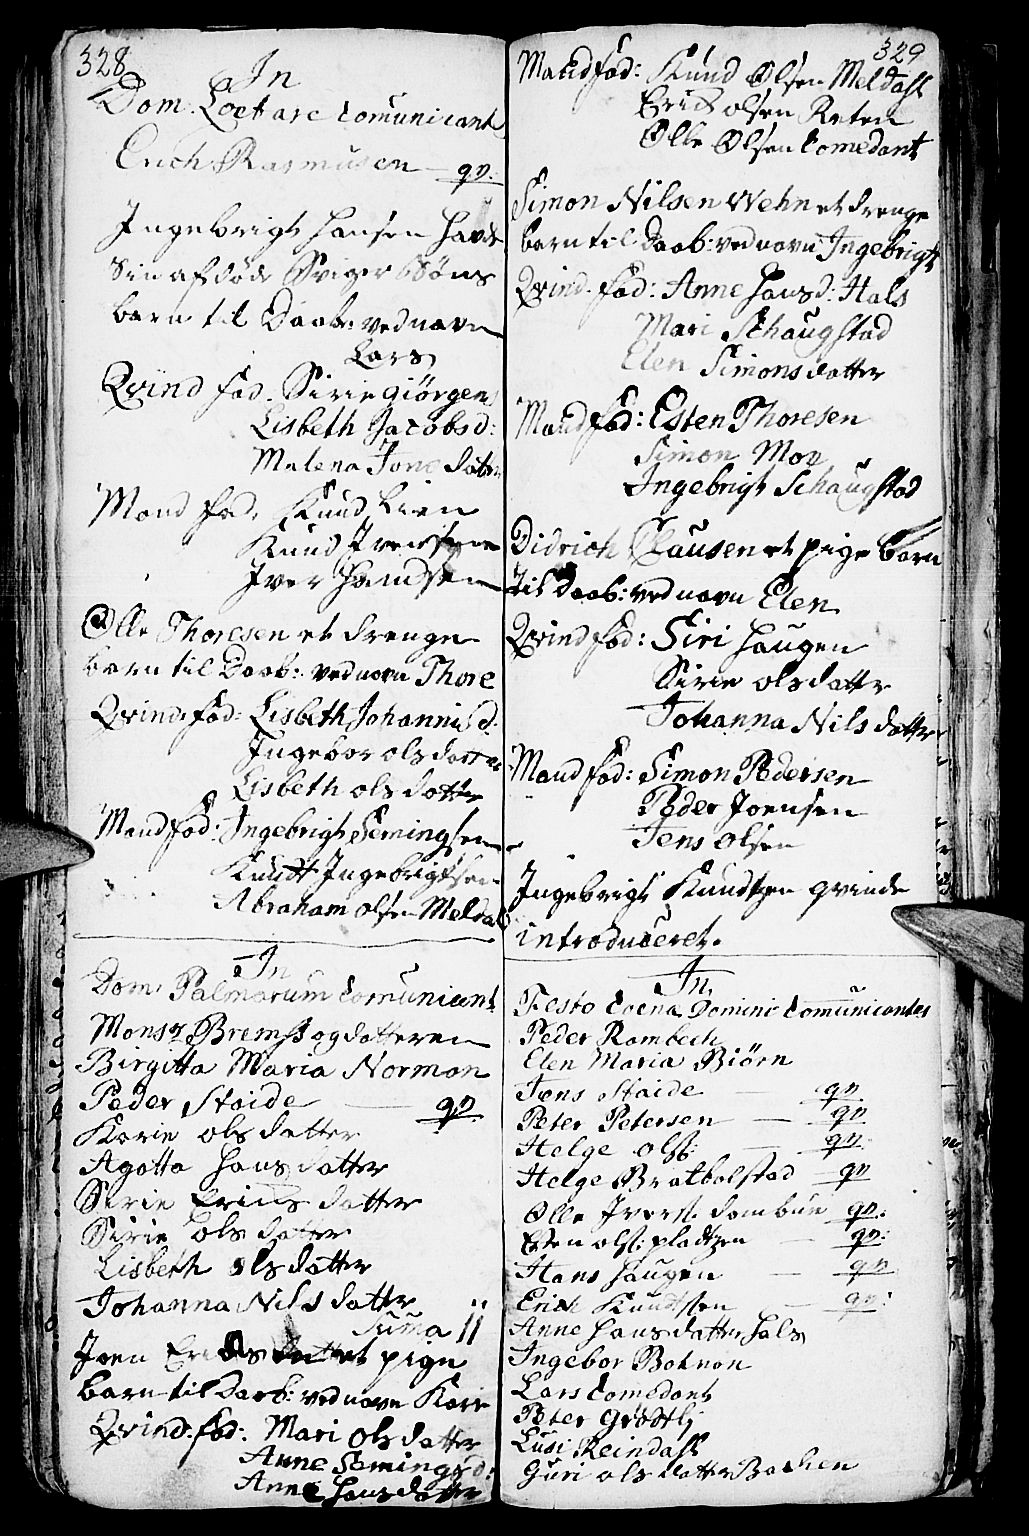 328
In
Dom. Loetare Comunicant
Erich Rasmusen — qv:
Ingebrigt Hansen
Sin afdøde Sviger Søns
barn til Daab: ved navn
Lars
Qvind fad. Sirie Giörgens
Lisbeth Jacobsd:
Malena Jons dater
Mand fad. Knud Lien
Knud Iversen
Iver Hansen
Olle Thoresen et drenge
barn til Daab: ved navn Thore
Qvind fad: Lisbeth Johannisd:
Ingebor olsdatter
Lisbeth ols datter
Mand fad: Ingebrigt Semingsen
Knudt Ingebrigtsen
Abraham olsen Meldal
In
Dom: Palmarum Comunicant
Monsr Bremst og datteren
Birgitta Maria Norman
Peder Staide — qv
Karie ols datter
Agatta Hans datter
Sirie Erichs datter
Sirie ols datter
Lisbeth ols datter
Johanna Nils datter
Suma 11
Joen et pige
barn til Daab: ved navn Kari
Qvind. fad: Mari Ols datter
Anne Semingsd:
Anne Hansdatter
329
Mand fad: Knud Olsen Meldahl
Erich olsen Reten
Olle Olsen Comedant
Simon Nilsen Wehn et drenge
barn til Daab: ved navn Ingebrigt
Qvind. fad: Anne Hansd: Hals
Mari Schaugstad
Elen Simons datter
Mand fad: Esten Thoresen
Simon Moe
Ingebrigt Schaugstad
Didrich Clausen et pige barn
til Daab: ved navn Elen
Qvind fad: Siri Haugen
Sirie olsdattr
Johanna Nils datter
Mand fad: Simon Pedersen
Peder Joensen
Jens Olsen
Ingebrigt Knudtzen qvinde
introduceret.
In
Festo Coena Domini Comunicantes
Peder Rambech
Elen Maria Biörn
Jens Staide — qv
Peter Petersen — qv
Helge olss: — qv:
Helge Bratbalstad — qv
Olle Iverss. dambue qv:
Esten olss: pladtzen — qv:
Hans Haugen — qv
Erich Knudtsen — qv:
Anne Hans datter Hals
Ingebor Botnan
Lars Comedant
Peter Gröttlj
Lusi Reindahl
Guri ols datter Bachen